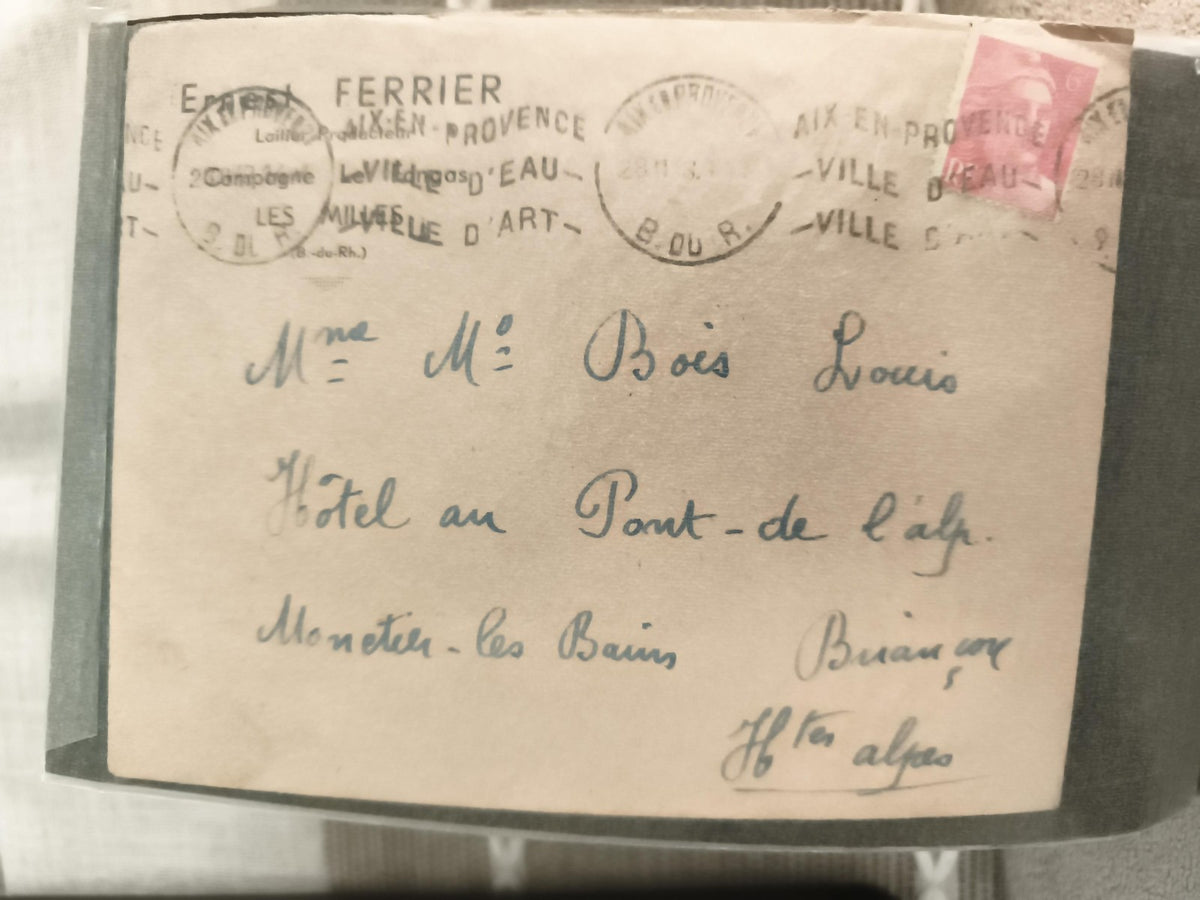 Ernest FERRIER
Laitier Producteur
Campagne Le
LES MILLES
(B.-du-Rh.)
AIX EN PROVENCE
B. DU R.
AIX-EN-PROVENCE
VILLE D'EAU
VILLE D'ART
AIX EN PROVENCE
28 11
B. DU R.
AIX EN PROVENCE
VILLE D'EAU
VILLE D'
Mme Mr Bois Louis
Hôtel au Pont-de l'alp.
Monetier-les Bains Briançon
Htes alpes